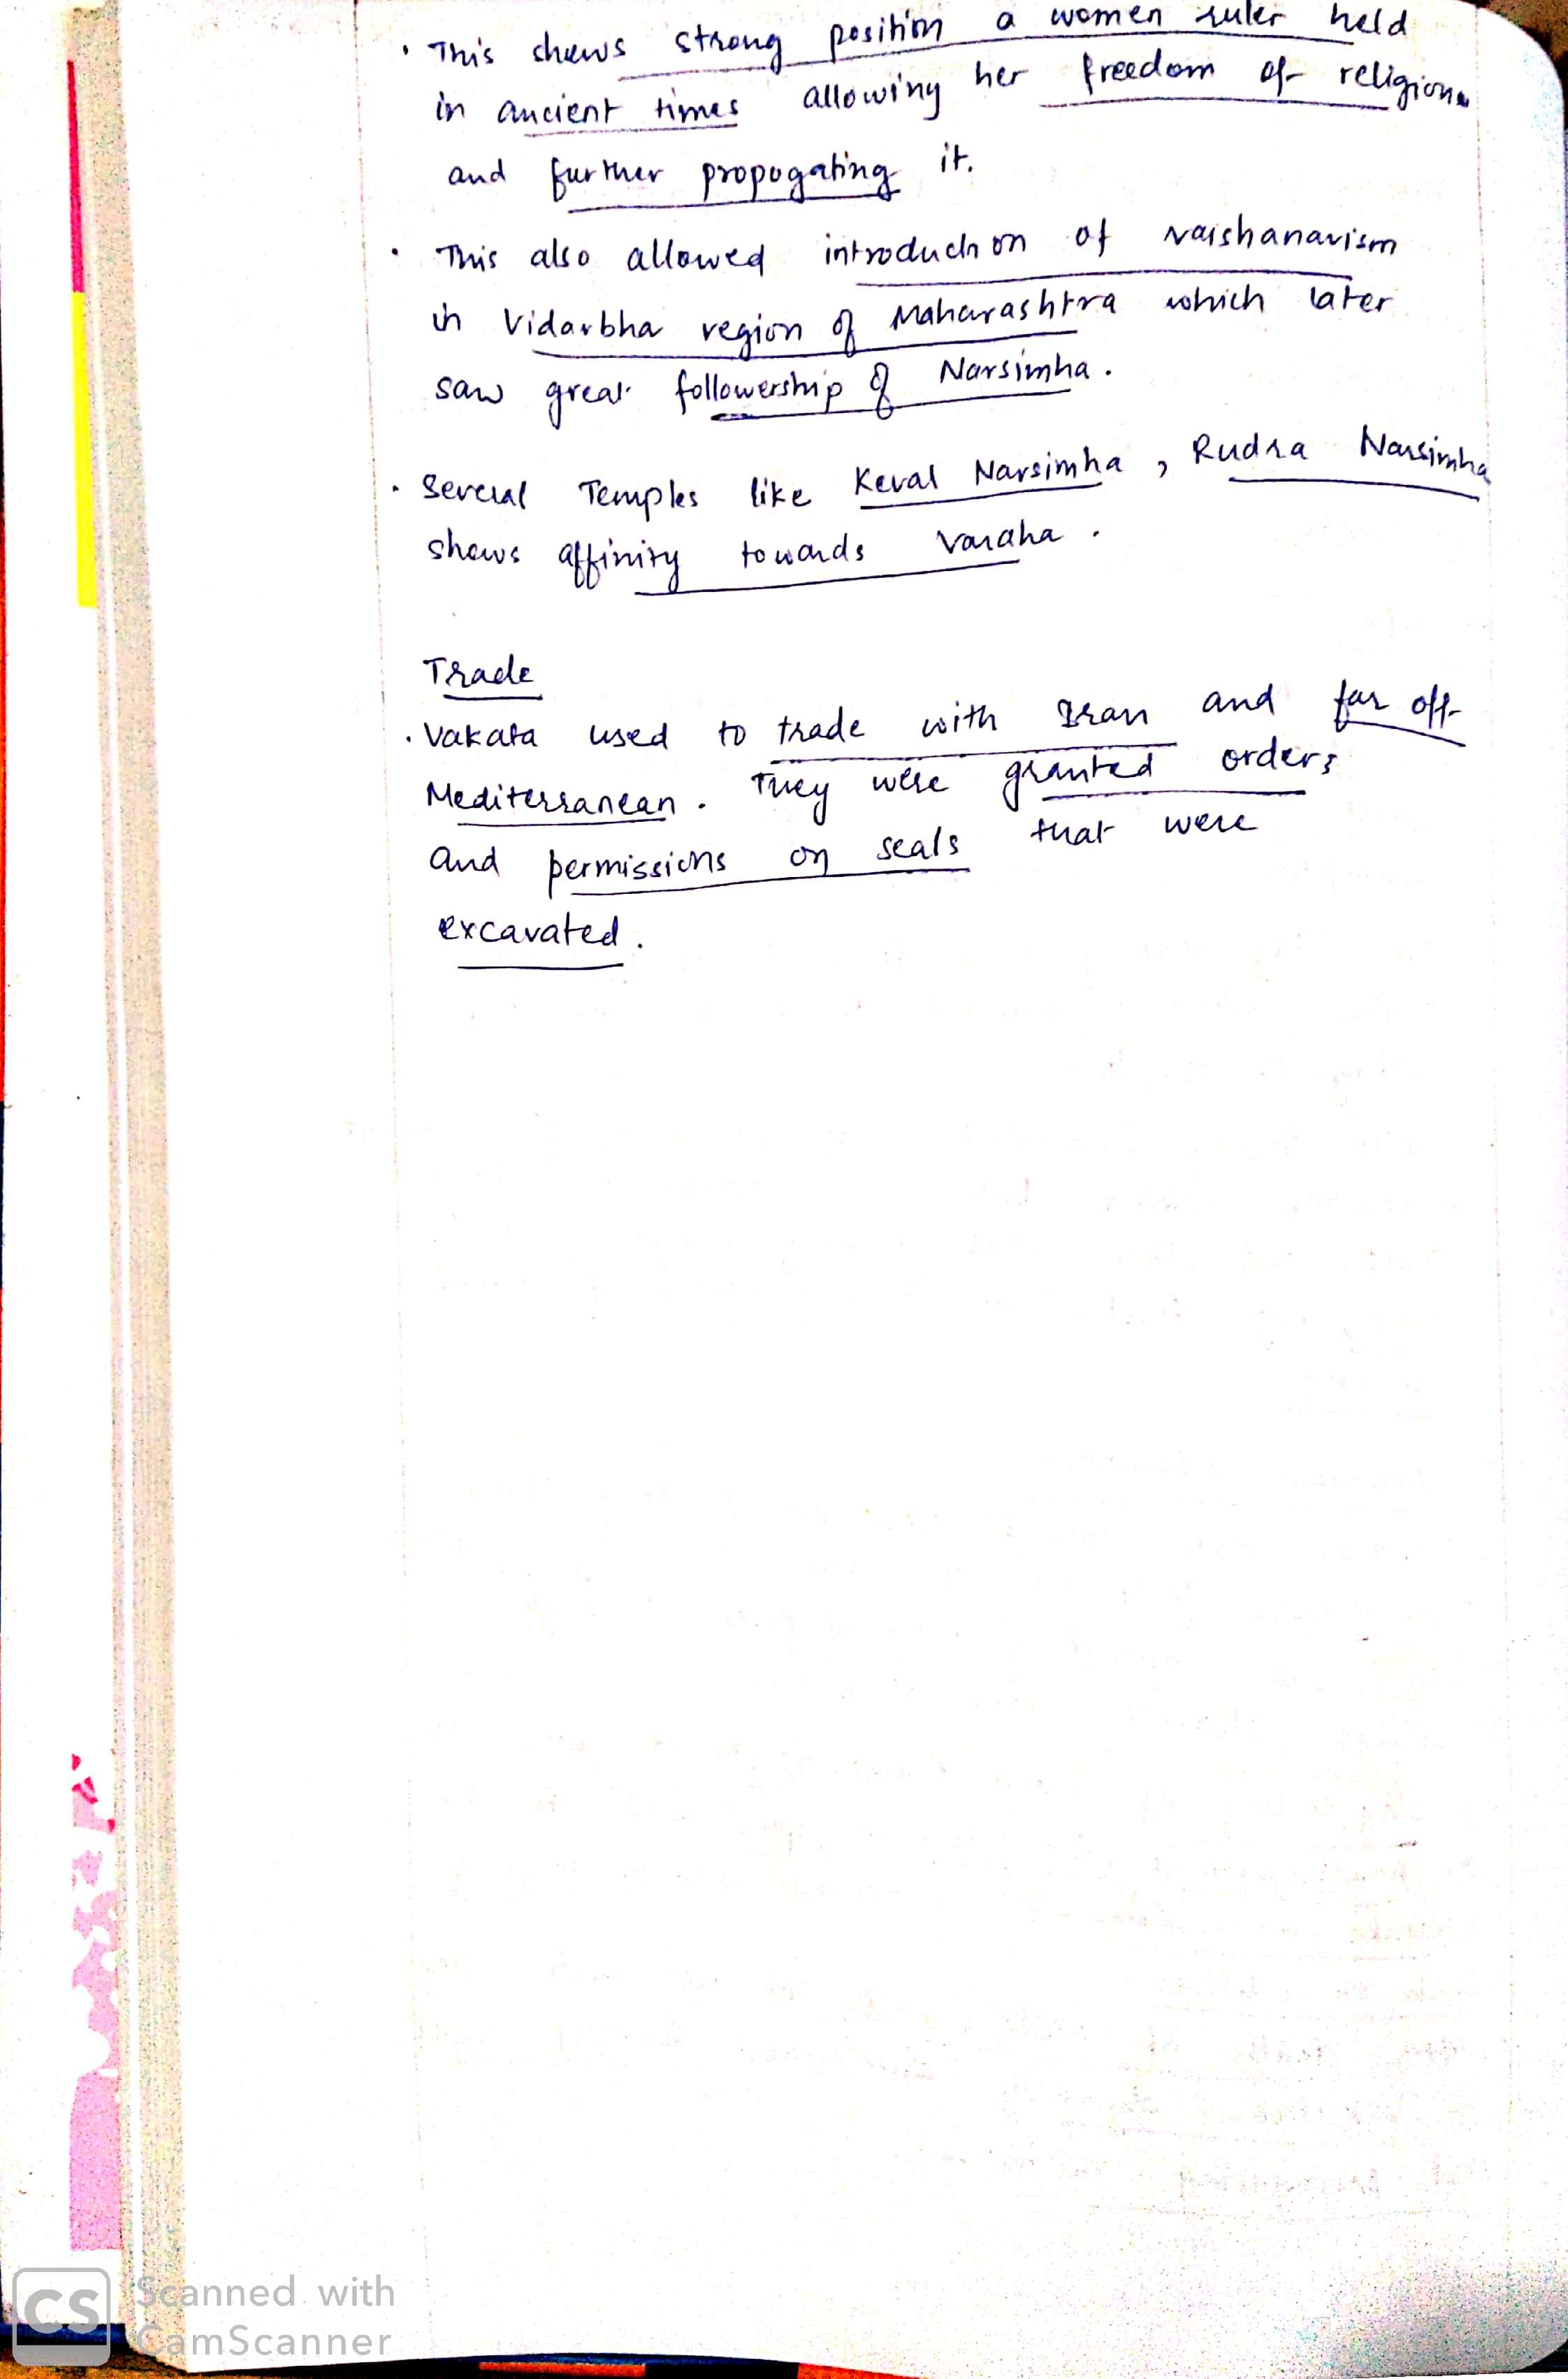 · This shows strong position a women ruler held
in ancient times allowing her freedom of religion
and further propogating it.
· This also allowed introduction of vaishanavism
in Vidarbha region of Maharashtra which later
saw great followership of Narsimha.
· Several Temples like Keval Narsimha, Rudra Narsimha
shows affinity towards Varaha.
Trade
· Vakata used to trade with Iran and far off
Mediterranean. They were granted orders
and permissions on seals that were
excavated.
CS Scanned with
CamScanner